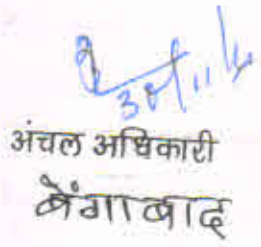 30/11/
अंचल अधिकारी
बेंगाबाद